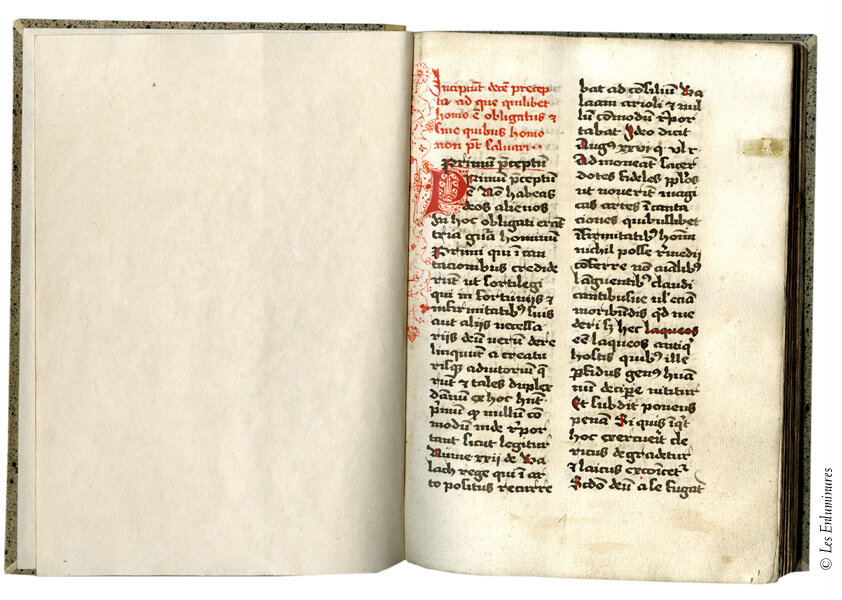 Incipiūt decē precep
ta ad que quilibet
homo ē obligatus et
sine quibus homo
non pt saluari
Primū p̄ceptū
Primū p̄ceptū
ē Nō habeas
deos alienos
In hoc obligati erāt
tria gn̄a hominum
Primi qui ī can
tacionibus credide
runt ut sortilegi
qui in fortunijs et
infirmitatibꝰ suis
aut alijs necessa
rijs deū verū dere
linquunt a creatu
risqꝫ adiutoriū q̄
rūt et tales duplex
dānū ex hoc hn̄t
p̄mum qꝫ nullū cō
modum inde rꝑor
tant sicut legitur
Nūme xxii de Ba
lach rege qui ī ar
to positus recurre
bat ad cōsiliū Ba
laam arioli et nul
lū cōmodū rꝑor
tabat Ideo dicit
Augꝰ xxvi q̄ vl̄t
Admoneāt sacer
dotes fideles pp̄los
ut nouerīt magi
cas artes īcanta
ciones quibuslibet
īfirmitatibꝰ hom̄
nichil posse rēmedii
cōferre nō aīalibꝰ
lāguentibꝰ claudi
cantibusue ul̄ eciā
moribūdis qd̄ me
deri sꝫ hec laqueos
eē laqueos antiq̄
hostis quibꝰ ille
ꝑfidus genꝰ hūa
nū decipe nititur
Et subdit ponens
penā Si quis īqt
hoc exercuerit cle
ricus degradetur
et laicus excōīcetr
Scdō deū a se fugāt
© Les Enluminures